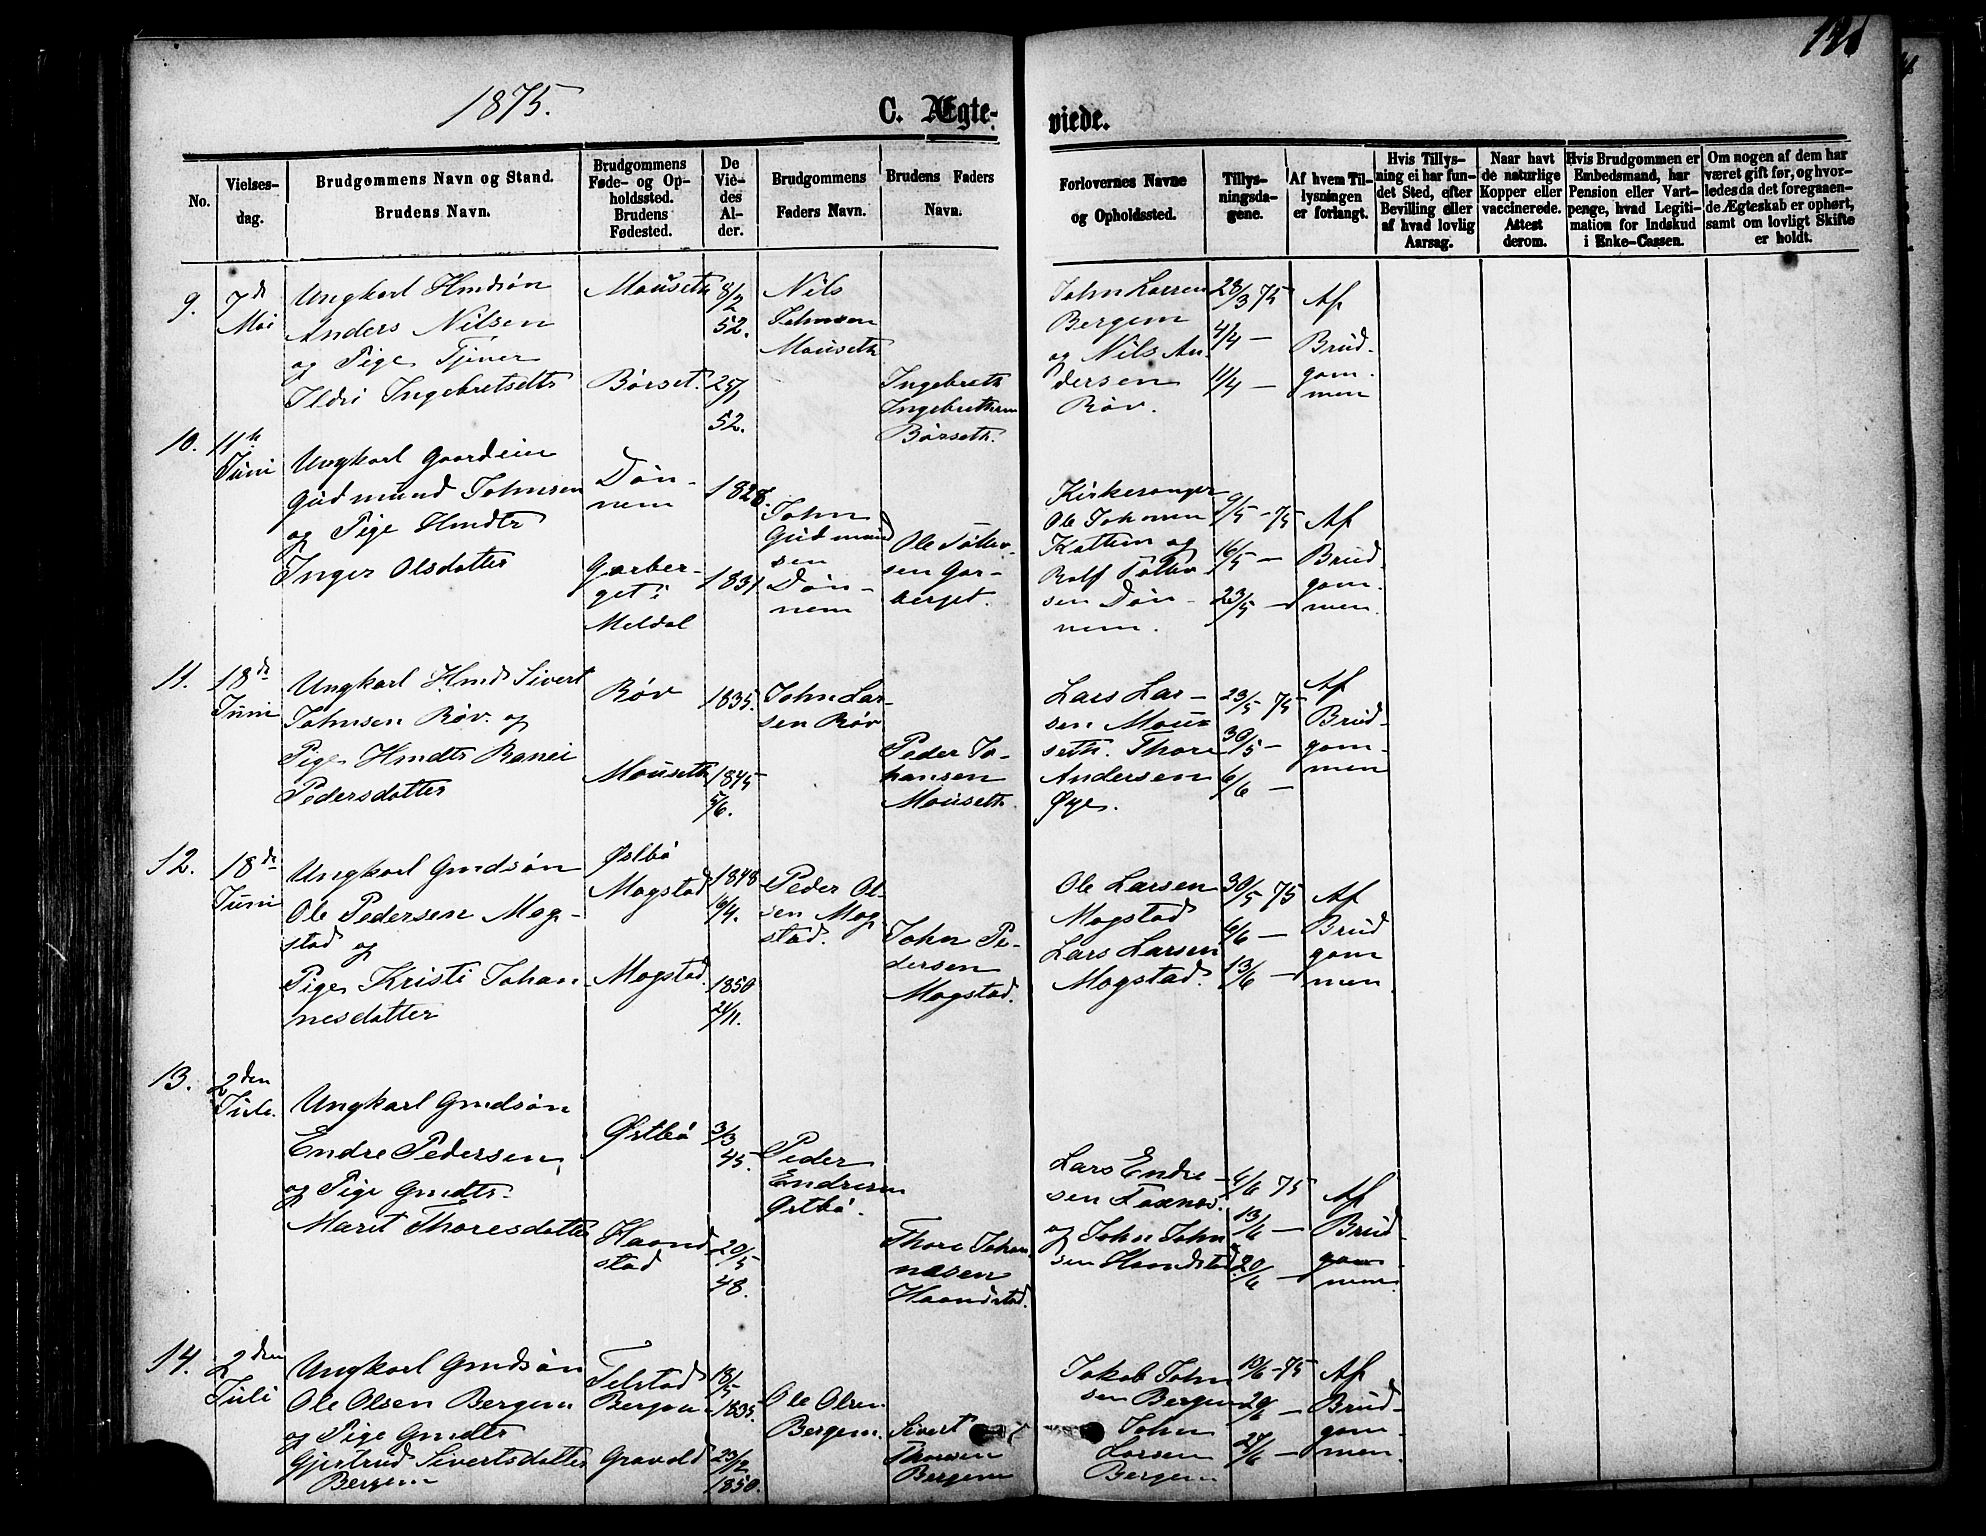 1875.
C. Ægte-
viede.
No.
Vielses-
dag.
Brudgommens Navn og Stand.
Brudens Navn.
Brudgommens
Føde- og Op-
holdssted.
Brudens
Fødested.
De
Vie-
des
Al-
der.
Brudgommens
Faders Navn.
Brudens Faders
Navn.
Forlovernes Navne
og Opholdssted.
Tillys-
ningsda-
gene.
Af hvem Til-
lysningen
er forlangt.
Hvis Tillys-
ning ei har fun-
det Sted, efter
Bevilling eller
af hvad lovlig
Aarsag.
Naar havt
de naturlige
Kopper eller
vaccinerede.
Attest
derom.
Hvis Brudgommen er
Embedsmand, har
Pension eller Vart-
penge, hvad Legiti-
mation for Indskud
i Enke-Cassen.
Om nogen af dem har
været gift før, og hvor-
ledes da det foregaaen-
de Ægteskab er ophørt,
samt om lovligt Skifte
er holdt.
9.
7de
Mai
Ungkarl Hmdsøn
Anders Nilsen
og Pige Tjener
Ildri Ingebretsdtr
Mouseth
Børset.
8/2
52.
25/1
52.
Nils
Johnsen
Mouseth
Ingebreth
Ingebrethsen
Børseth.
John Larsen
Bergem
og Nils An
dersen
Røv.
28/3 75
4/4 —
11/4 —
Af
Brud-
gom-
men
10.
11te
Juni
Ungkarl Gaardeier
Gudmund Johnsen
og Pige Hmdtr
Inger Olsdatter
Døn-
nem
Garber-
get i
Meldal
1828.
1831
John
Gudmund
sen
Døn-
nem
Ole Tollev-
sen Gar-
berget.
Kirkesanger
Ole Johnsen
Kattem og
Rolf Tollev
sen Døn-
nem.
9/5 - 75
16/5 —
23/5 —
Af
Brud
gom-
men.
11.
18de
Juni
Ungkarl Hmds Sivert
Johnsen Røv. og
Pige Hmdtr Ranei
Pedersdatter
Røv
Mouseth
1835.
1845
5/6.
John Lar-
sen Røv
Peder Jo-
hansen
Mouseth.
Lars Lar-
sen Mou-
seth. Thore
Andersen
Øye.
23/5 - 75
30/5 —
6/6 —
Af
Brud-
gom-
men
12.
18de
Juni
Ungkarl Gmdsøn
Ole Pedersen Mog-
stad og
Pige Kristi Johan
nesdatter
Østbø
Mogstad
Mogstad.
1848
16/4.
1850
24/11.
Peder Ol
sen Mog
stad.
John Pe-
dersen
Mogstad.
Ole Larsen
Mogstad
Lars Larsen
Mogstad.
30/5 75
6/6 —
13/6 —
Af
Brud
gom
men.
13.
2den
Juli.
Ungkarl Gmdsøn
Endre Pedersen,
og Pige Gmdtr.
Marit Thoresdatter
Østbø
Haand
stad
3/3
45.
20/5
48.
Peder
Endresen
Østbø.
Thore Johan
nesen
Haandstad.
Lars Endre-
sen Foxnes.
og John John
sen Haandstad
6/6 75
13/6 —
20/6 —
Af
Brud-
gom-
men.
14.
2den
Juli
Ungkarl Gmdsøn
Ole Olsen Bergem
og Pige Gmdtr
Gjertrud Sivertsdatter
Bergem
Telstad
Bergem
Gravold
18/5
1835.
23/2
1850.
Ole Olsen
Bergem.
Sivert
Thoresen
Bergem
Jakob John
sen Bergem
John
Larsen
Bergem
13/6 - 75
20/6 —
27/6 —
Af
Brud-
gom-
men.